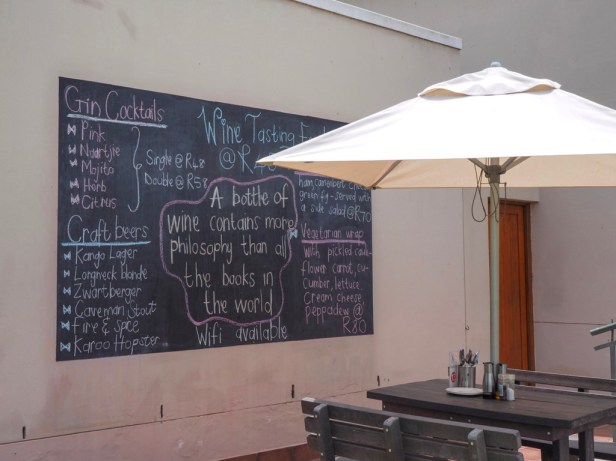 Gin Cocktails
Pink
Naartjie
Mojito
Herb
Citrus
Single @ R48
Double @ R58
Craft beers
Kango Lager
Longneck blonde
Zwartberger
Caveman stout
Fire & spice
Karoo Hopster
Wine Tasting
@ R40
A bottle of
wine contains more
philosophy than all
the books in
the world
Wifi available
ham, camembert
green fig - served with
a side salad @ R70
Vegetarian wrap
With pickled cauli-
flower carrot, cu-
cumber, lettuce
cream cheese
peppadew @
R80